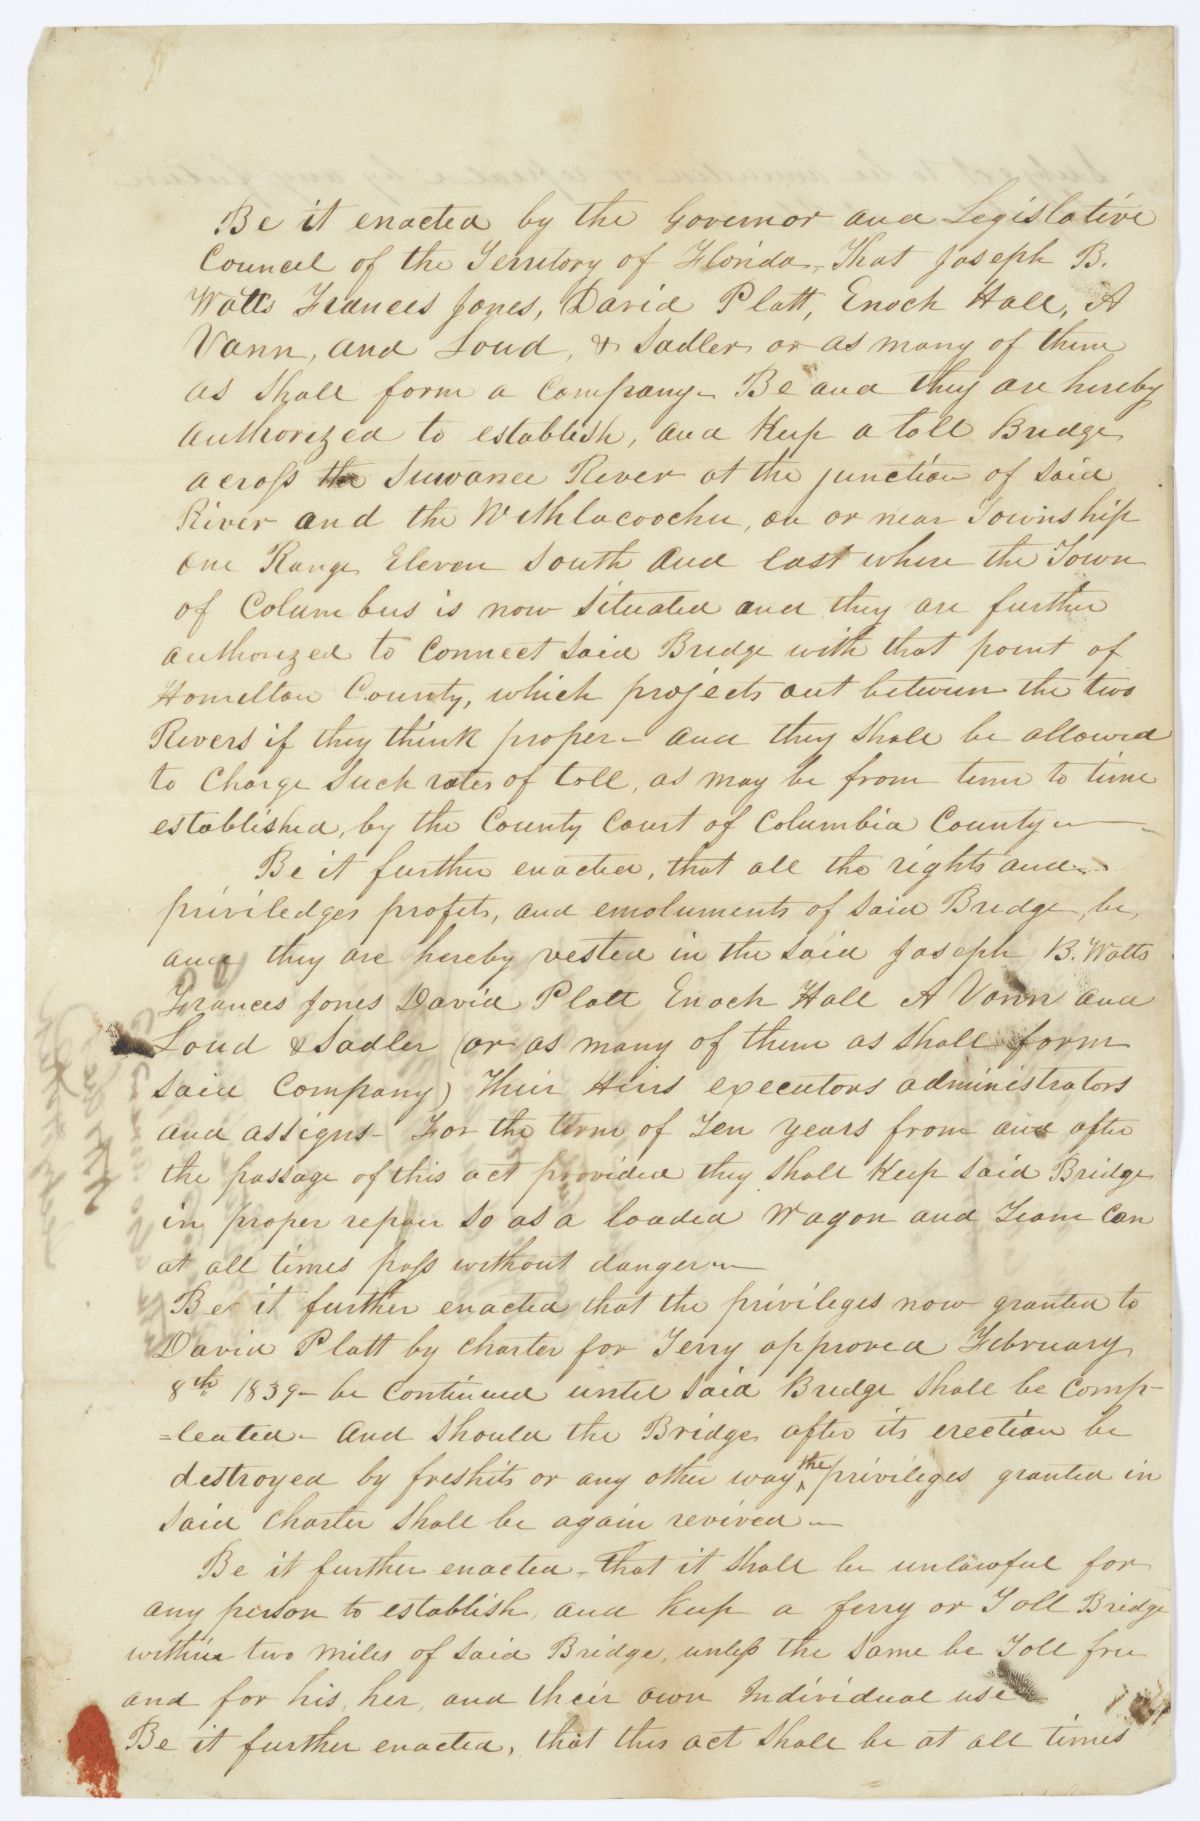 Be it enacted by the Governor and Legislative
Council of the Territory of Florida, That Joseph B.
Watts Frances Jones, David Platt, Enoch Hall, A
Vann, and Loud, & Sadler or as many of them
as shall form a Company - Be and they are hereby
authorized to establish, and Keep a toll Bridge
across the Suwanee River at the junction of said
River and the Withlacoochee, on or near Township
one Range Eleven South and East where the Town
of Columbus is now situated and they are further
authorized to Connect said Bridge with that point of
Hamelton County, which projects out between the two
Rivers if they think proper - and they shall be allowed
to Charge such rates of toll, as may be from time to time
established, by the County Court of Columbia County -
Be it further enacted, that all the rights and
priviledges profits, and emoluments of said Bridge, be,
and they are hereby vested in the said Joseph B. Watts
Frances Jones David Platt Enoch Hall A Vann and
Loud & Sadler (or as many of them as shall form
said Company) their Heirs executors administrators
and assigns - For the term of Ten years from and after
the passage of this act provided they shall Keep said Bridge
in proper repair so as a loaded Wagon and Team Can
at all times pass without danger -
Be it further enacted that the privileges now granted to
David Platt by charter for Ferry approved February
8th 1839 - be continued until said Bridge shall be comp-
=leated - And should the Bridge after its erection be
destroyed by freshits or any other way the privileges granted in
said charter shall be again revived -
Be it further enacted - that it shall be unlawful for
any person to establish, and Keep a ferry or Toll Bridge
within two miles of said Bridge, unless the same be Toll free
and for his, her, and their own Individual use
Be it further enacted, that this act shall be at all times